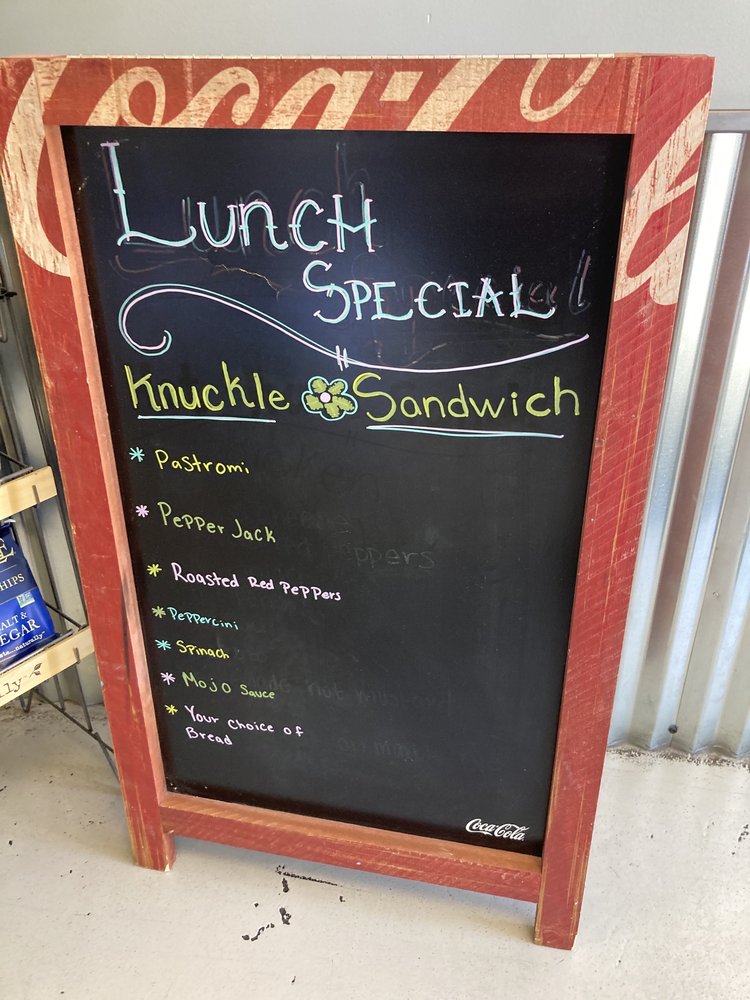 Coca-Co
Lunch
Special
Knuckle Sandwich
* Pastromi
* Pepper Jack
* Roasted Red Peppers
* Peppercini
* Spinach
* Mojo Sauce
* Your Choice of
Bread
Coca-Cola
HIPS
ALT &
EGAR
naturally"
lly